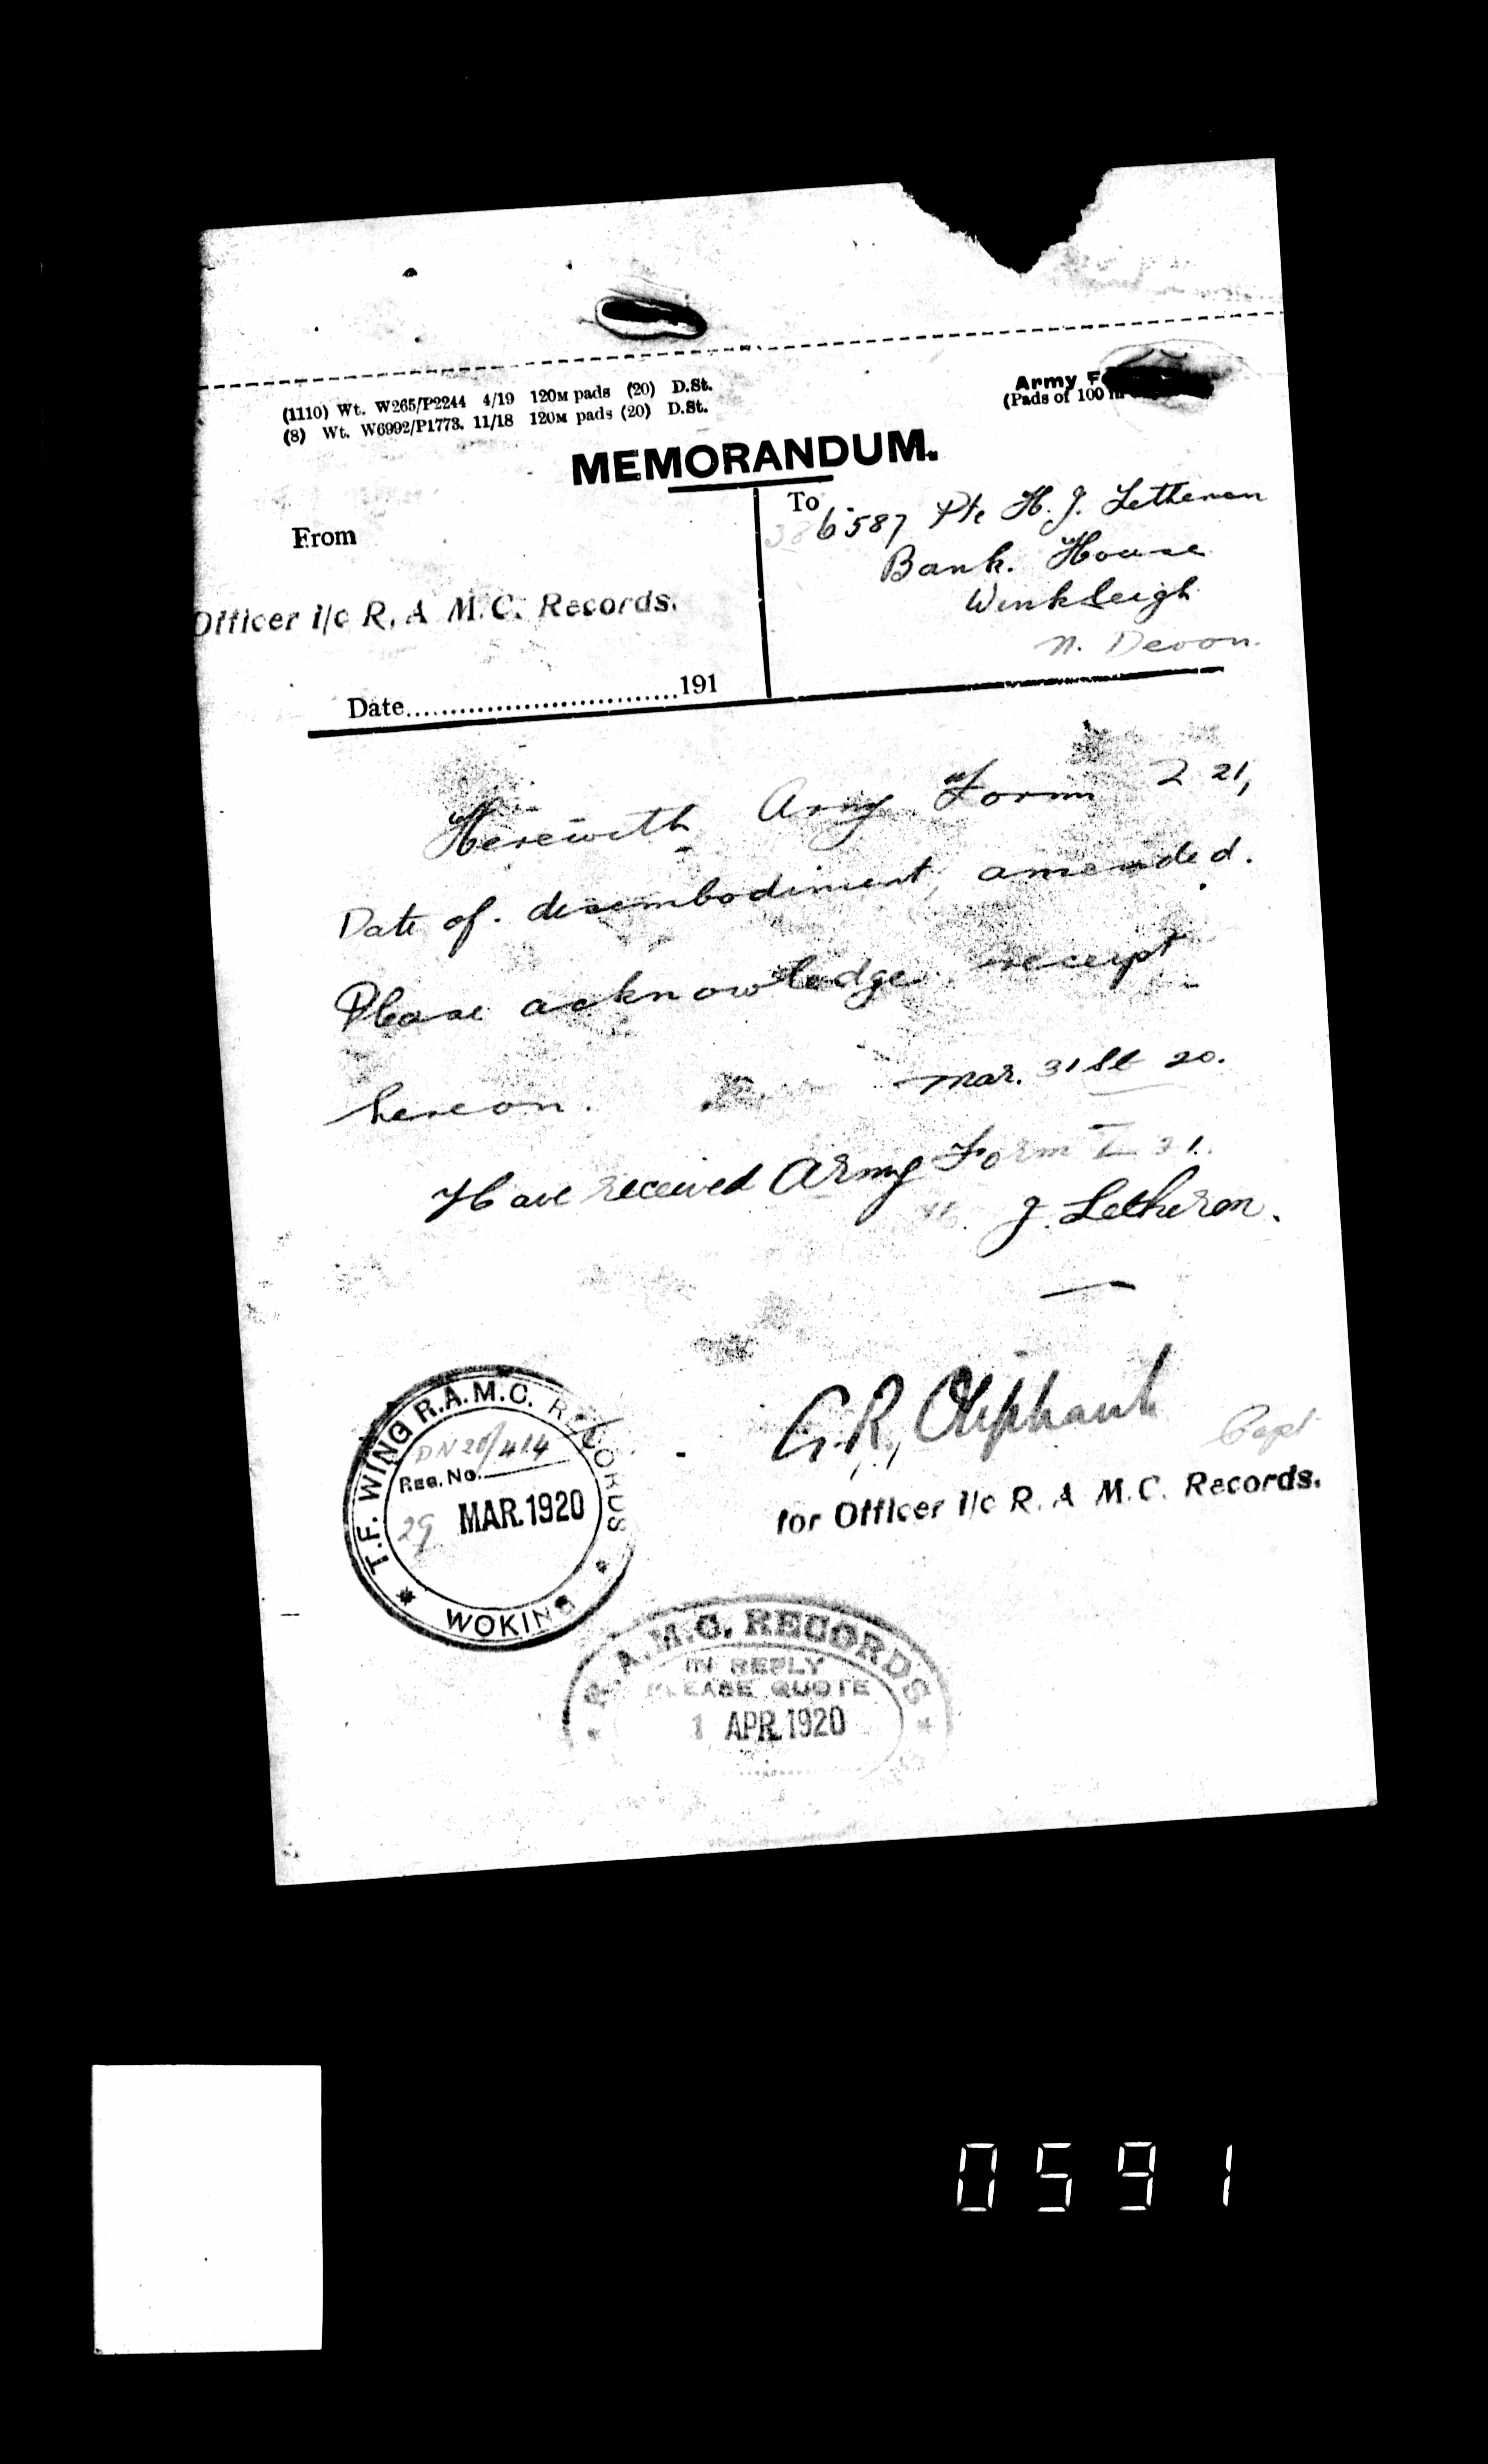 (1110) Wt. W265/P2244 4/19 120M pads (20) D.St.
(8) Wt. W6992/P1773. 11/18 120M pads (20) D.St.
Army F
(Pads of 100
MEMORANDUM.
From
Officer i/c R. A M.C. Records.
Date 191
To
386587 Pte H. J. Letheren
Bank. House
Winkleigh
N. Devon.
Herewith Army Form Z 21,
Date of. disembodiment, amended.
Please acknowledge receipt
hereon.
Mar. 31st 20.
Have received Army Form Z 21.
H. J. Letheren.
G.R. Oliphant
Capt
for Officer i/c R. A M.C. Records.
T.F. WING R.A.M.C. RECORDS
DN 20/414
Reg. No.
29 MAR. 1920
* WOKING *
* R.A.M.C. RECORDS *
IN REPLY
PLEASE QUOTE
1 APR. 1920
0591